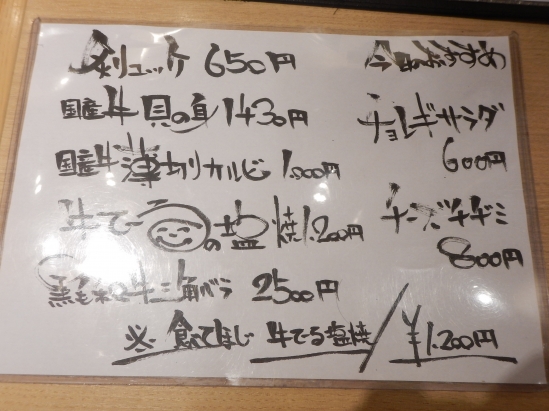 今日のおすすめ
ユッケ 650円
国産牛 貝の身 1430円
国産牛 薄切りカルビ 1,000円
牛て〜る の塩焼 1.200円
黒毛和牛三角バラ 2500円
チョレギサラダ
600円
チーズチヂミ
800円
※ 食てほしい 牛て〜る塩焼 / ¥1.200円